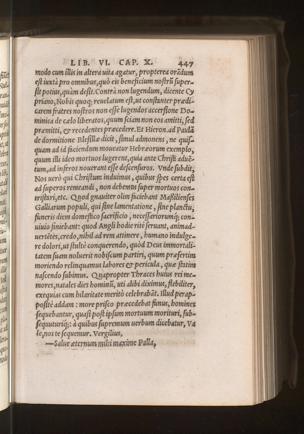 LIB. VI. CAP. X. 447
modo cum illis in altera uita agatur, propterea orādum
est iuxtà pro omnibus, quò eis beneficium nostrū super-
sit potius, quàm desit. Contrà non lugendum, dicente Cy
priano, Nobis quoq; reuelatum est, ut constanter prædi-
carem fratres nostros non esse lugendos accersione Do-
minica de sæculo liberatos, quum sciam non eos amitti, sed
præmitti, & recedentes præcedere. Et Hieron. ad Paulā
de dormitione Blesillæ dicit, simul admonens, ne quis-
quam ad id faciendum moueatur Hebræorum exemplo,
quum illi ideo mortuos lugerent, quia ante Christi aduē-
tum, ad inferos nouerant esse descensuros. Vnde subdit,
Nos uerò qui Christum induimus, quibus spes certa est
ad superos remeandi, non debemus super mortuos con-
tristari, etc. Quod gnauiter olim faciebant Massilienses
Galliarum populi, qui sine lamentatione, sine planctu,
funeris diem domestico sacrificio, necessariorumq; con-
uiuio finiebant: quod Angli hodie ritè seruant, animad-
uertētes, credo, nihil ad rem attinere, humano indulge-
re dolori, ut stultè conquerendo, quòd Deus immortali-
tatem suam noluerit nobiscum partiri, quum præsertim
moriendo relinquamus labores & pericula, quæ statim
nascendo subimus. Quapropter Thraces huius rei me-
mores, natales dies hominū, uti alibi diximus, flebiliter,
exequias cum hilaritate meritò celebrabāt. illud perap-
positè addam: more prisco præcedebat funus, homines
sequebantur, quasi post ipsum mortuum morituri, sub-
sequuturiq;: à quibus supremum uerbum dicebatur, Va
le, nos te sequemur. Vergilius,
—Salue æternum mihi maxime Palla,